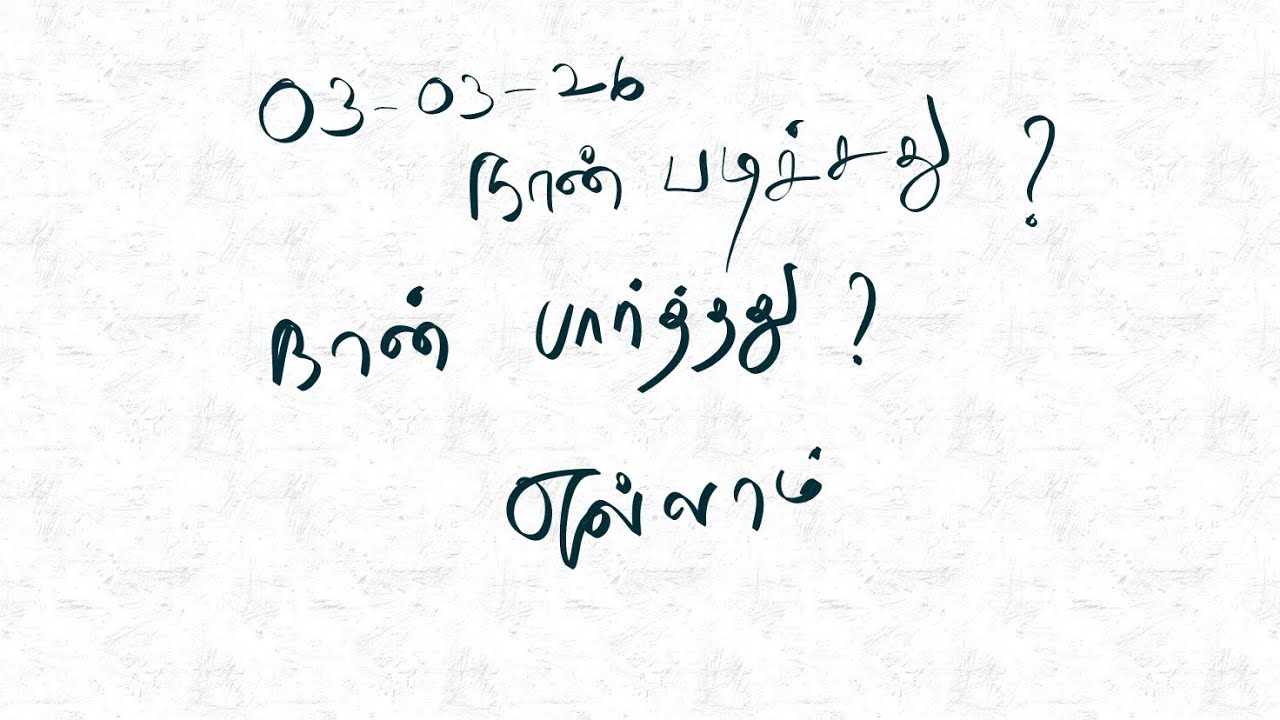 03-03-26
நான் படிச்சது ?
நான் பார்த்தது ?
எல்லாம்